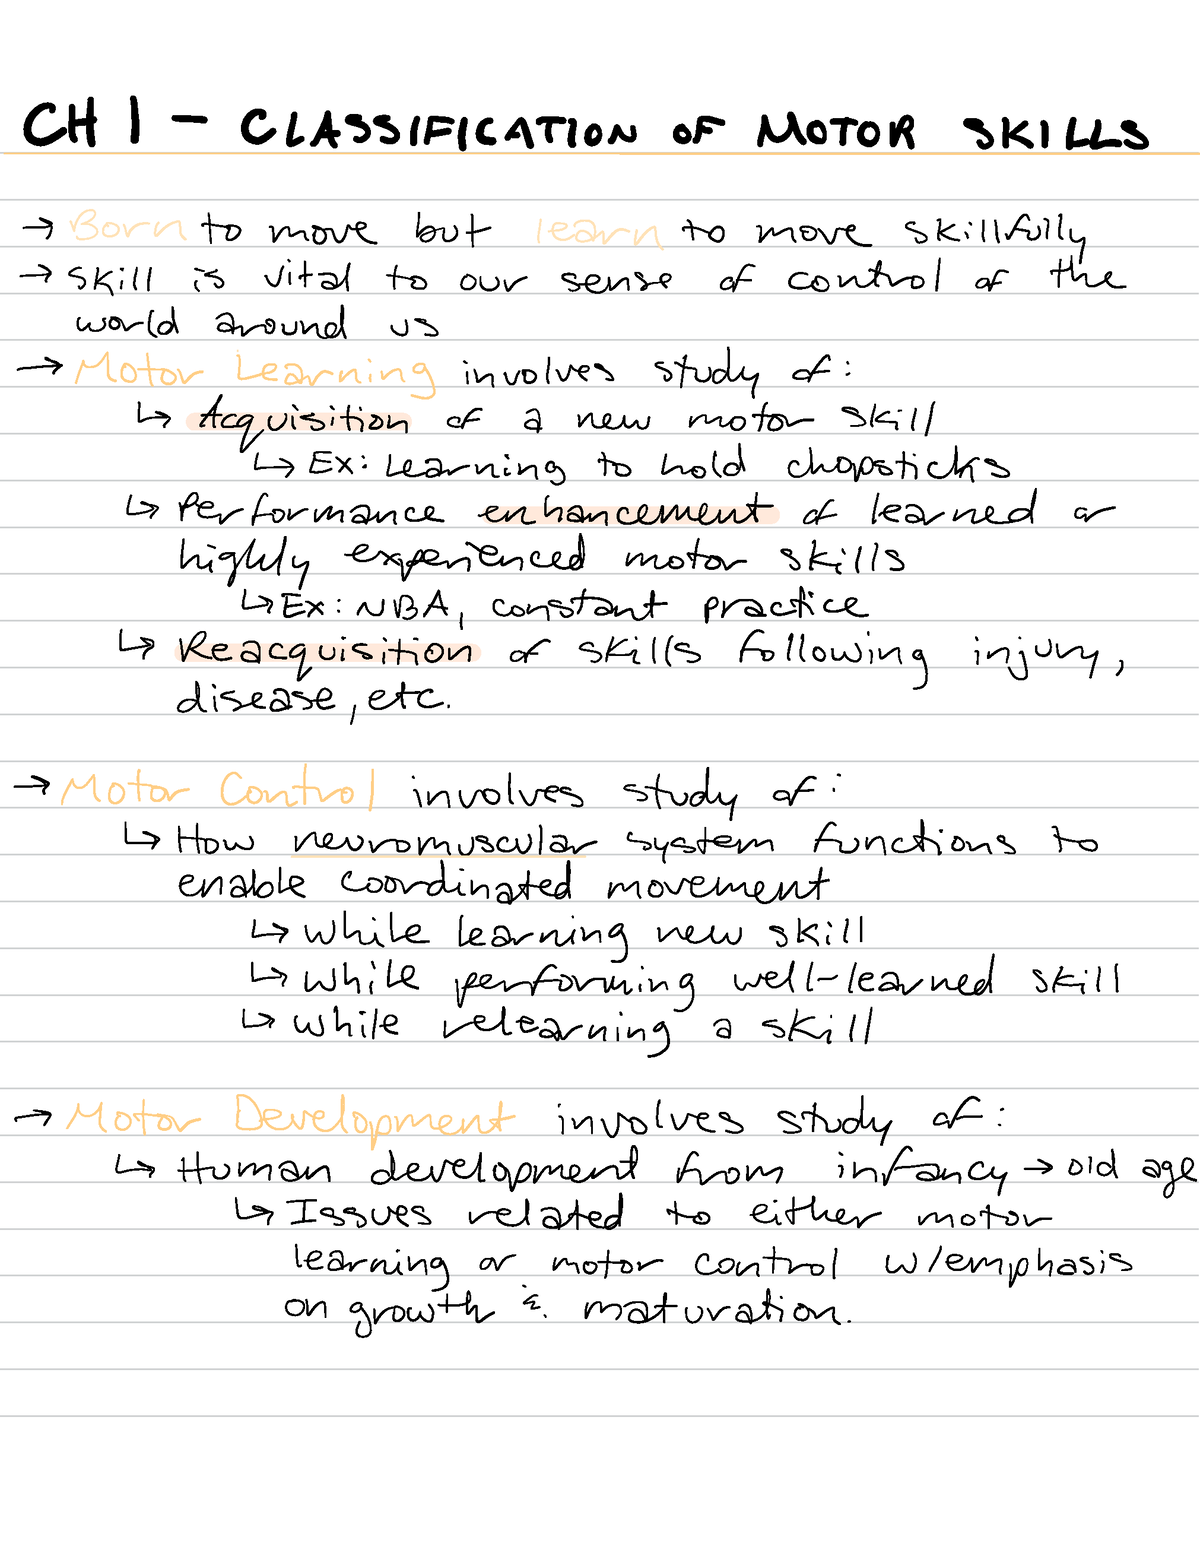 CH 1 - CLASSIFICATION OF MOTOR SKILLS
→ Born to move but learn to move skillfully
→ Skill is vital to our sense of control of the
world around us
→ Motor Learning involves study of:
↳ Acquisition of a new motor skill
↳ Ex: Learning to hold chopsticks
↳ Performance enhancement of learned or
highly experienced motor skills
↳ Ex: NBA, constant practice
↳ Reacquisition of skills following injury,
disease, etc.
→ Motor Control involves study of:
↳ How neuromuscular system functions to
enable coordinated movement
↳ while learning new skill
↳ while performing well-learned skill
↳ while relearning a skill
→ Motor Development involves study of:
↳ Human development from infancy → old age
↳ Issues related to either motor
learning or motor control w/emphasis
on growth & maturation.